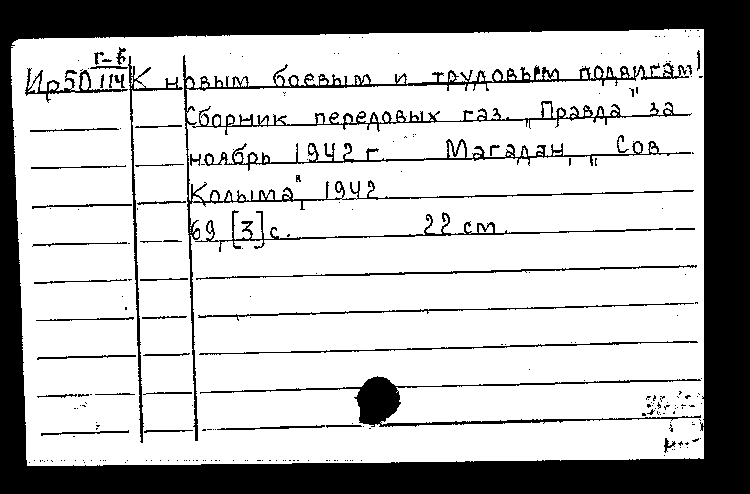 Г-Б
Ир50 114 К новым боевым и трудовым подвигам!
Сборник передовых газ. „Правда" за
ноябрь 1942 г. Магадан, „Сов.
Колыма", 1942
69, [3] с. 22 см.